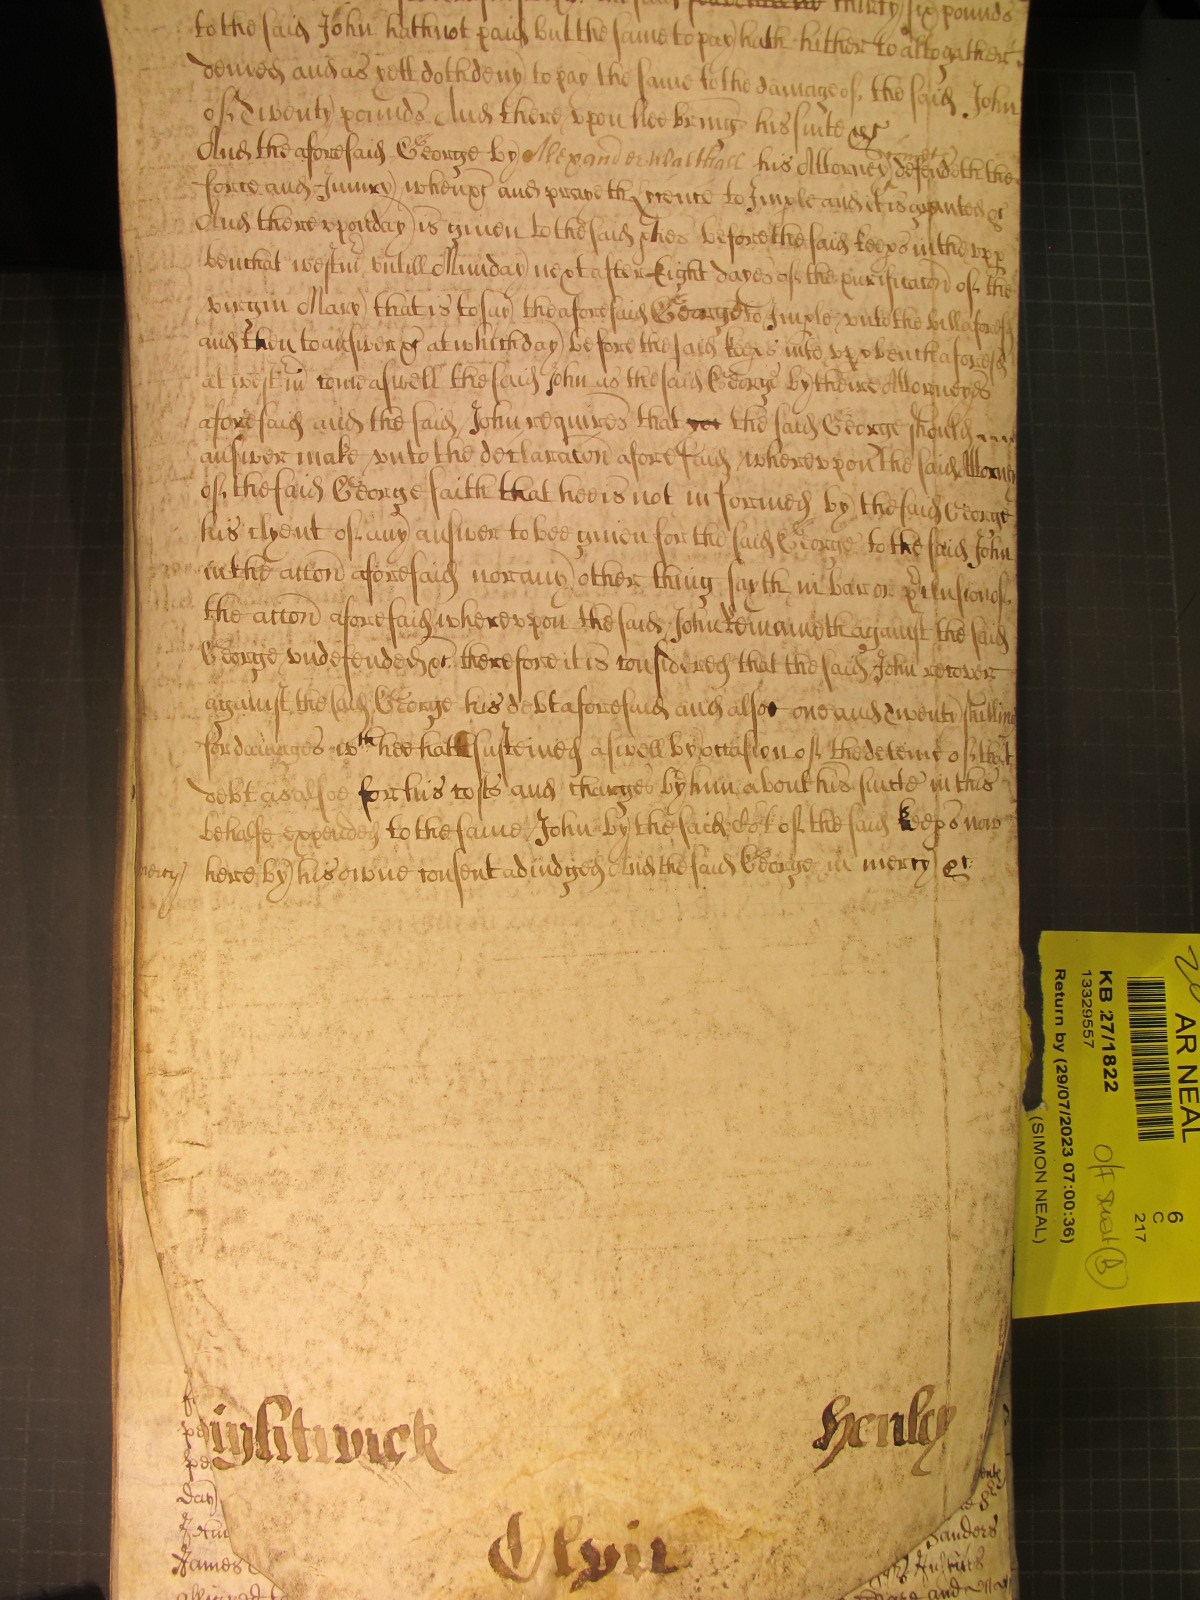 thirty six pounds
to the said John hath not paid but the same to pay hath hitherto altogather
denied and as yett doth deny to pay the same to the damage of the said John
of Twenty pounds And there vpon hee brings his suite &c
And the aforesaid George by Alexander Walthall his Attorney defendeth the
force and Iniury when &c and prayeth licence to Imple and it is graunted &c
And therevpon day is giuen to the said p̱ties before the said keep̱s in the vpp̱
bench at westm̄ vntill Munday next after Eight dayes of the purificac̄on of the
virgin Mary that is to say the aforesaid George to Imple vnto the bill aforesd
and then to answer &c at which day before the said keep̱s in the vp̱p bench aforesd
at westm̄ come aswell the said John as the said George by theire Attorneyes
aforesaid and the said John requires that the said George should
answer make vnto the declarac̄on aforesaid wherevpon the said Attorny
of the said George saith that hee is not informed by the said George
his clyent of any answer to bee giuen for the said George to the said John
in the acc̄on aforesaid nor any other thing sayth in bar or p̱clusion of
the acc̄on aforesaid wherevpon the said John Remaineth against the said
George vndefended &c therefore it is considered that the said John recover
against the said George his debt aforesaid and alsoe one and Twenty shillings
for damages wch hee hath susteined aswell by occasion of the deteinic̄ of that
debt as alsoe for his costs and charges by him about his suite in this
behalfe expended to the same John by the said Co͠rt of the said keep̱s now
here by his owne consent adiudged And the said George in mercy &c
mercy
Whitwick Henley
Clviii
day
James
Sanders
KB 27/1822
13329557
Return by (29/07/2023 07:00:36)
(SIMON NEAL)
AR NEAL
6
C
217